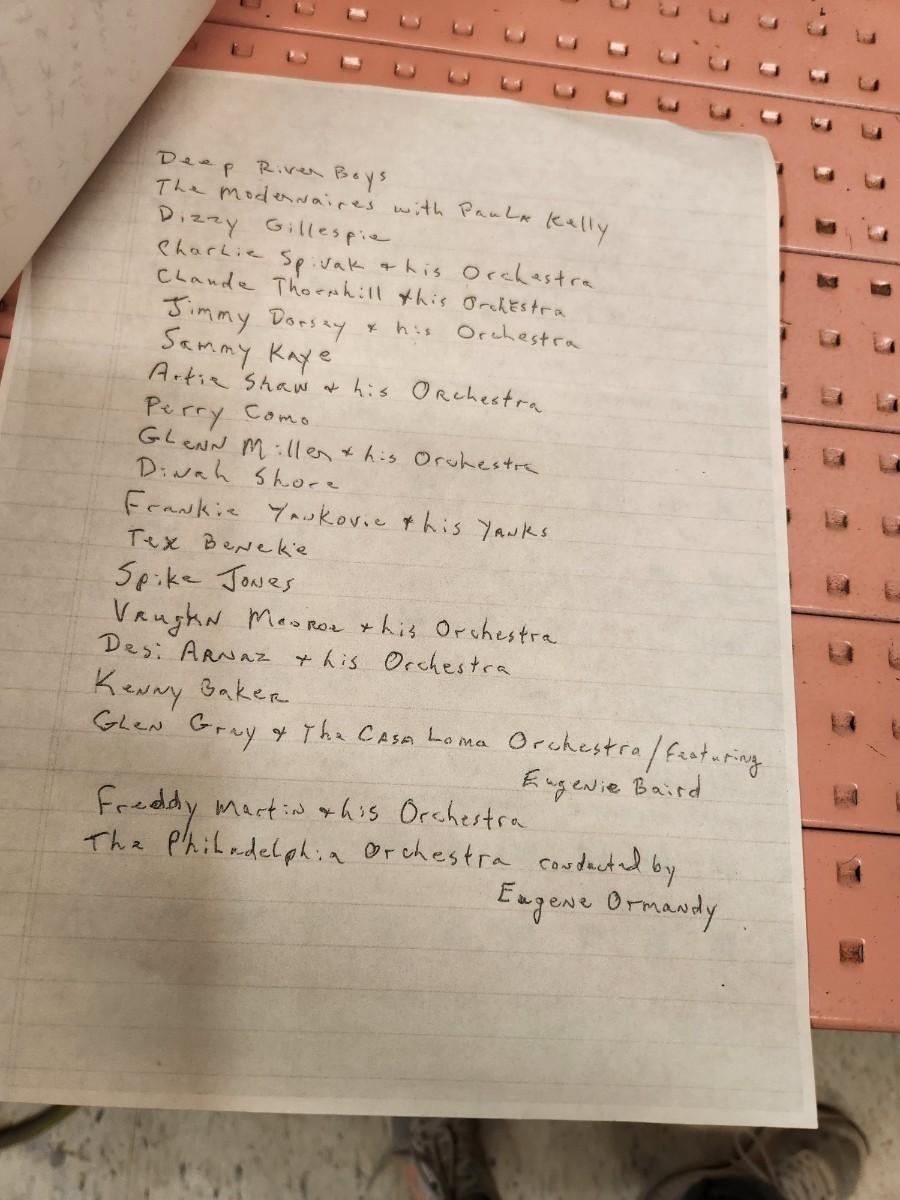 Deep River Boys
The Modernaires with Paula Kelly
Dizzy Gillespie
Charlie Spivak & his Orchestra
Claude Thornhill & his Orchestra
Jimmy Dorsey & his Orchestra
Sammy Kaye
Artie Shaw & his Orchestra
Perry Como
Glenn Miller & his Orchestra
Dinah Shore
Frankie Yankovic & his Yanks
Tex Beneke
Spike Jones
Vaughn Monroe & his Orchestra
Desi Arnaz & his Orchestra
Kenny Baker
Glen Gray & The Casa Loma Orchestra/featuring
Eugenie Baird
Freddy Martin & his Orchestra
The Philadelphia Orchestra conducted by
Eugene Ormandy